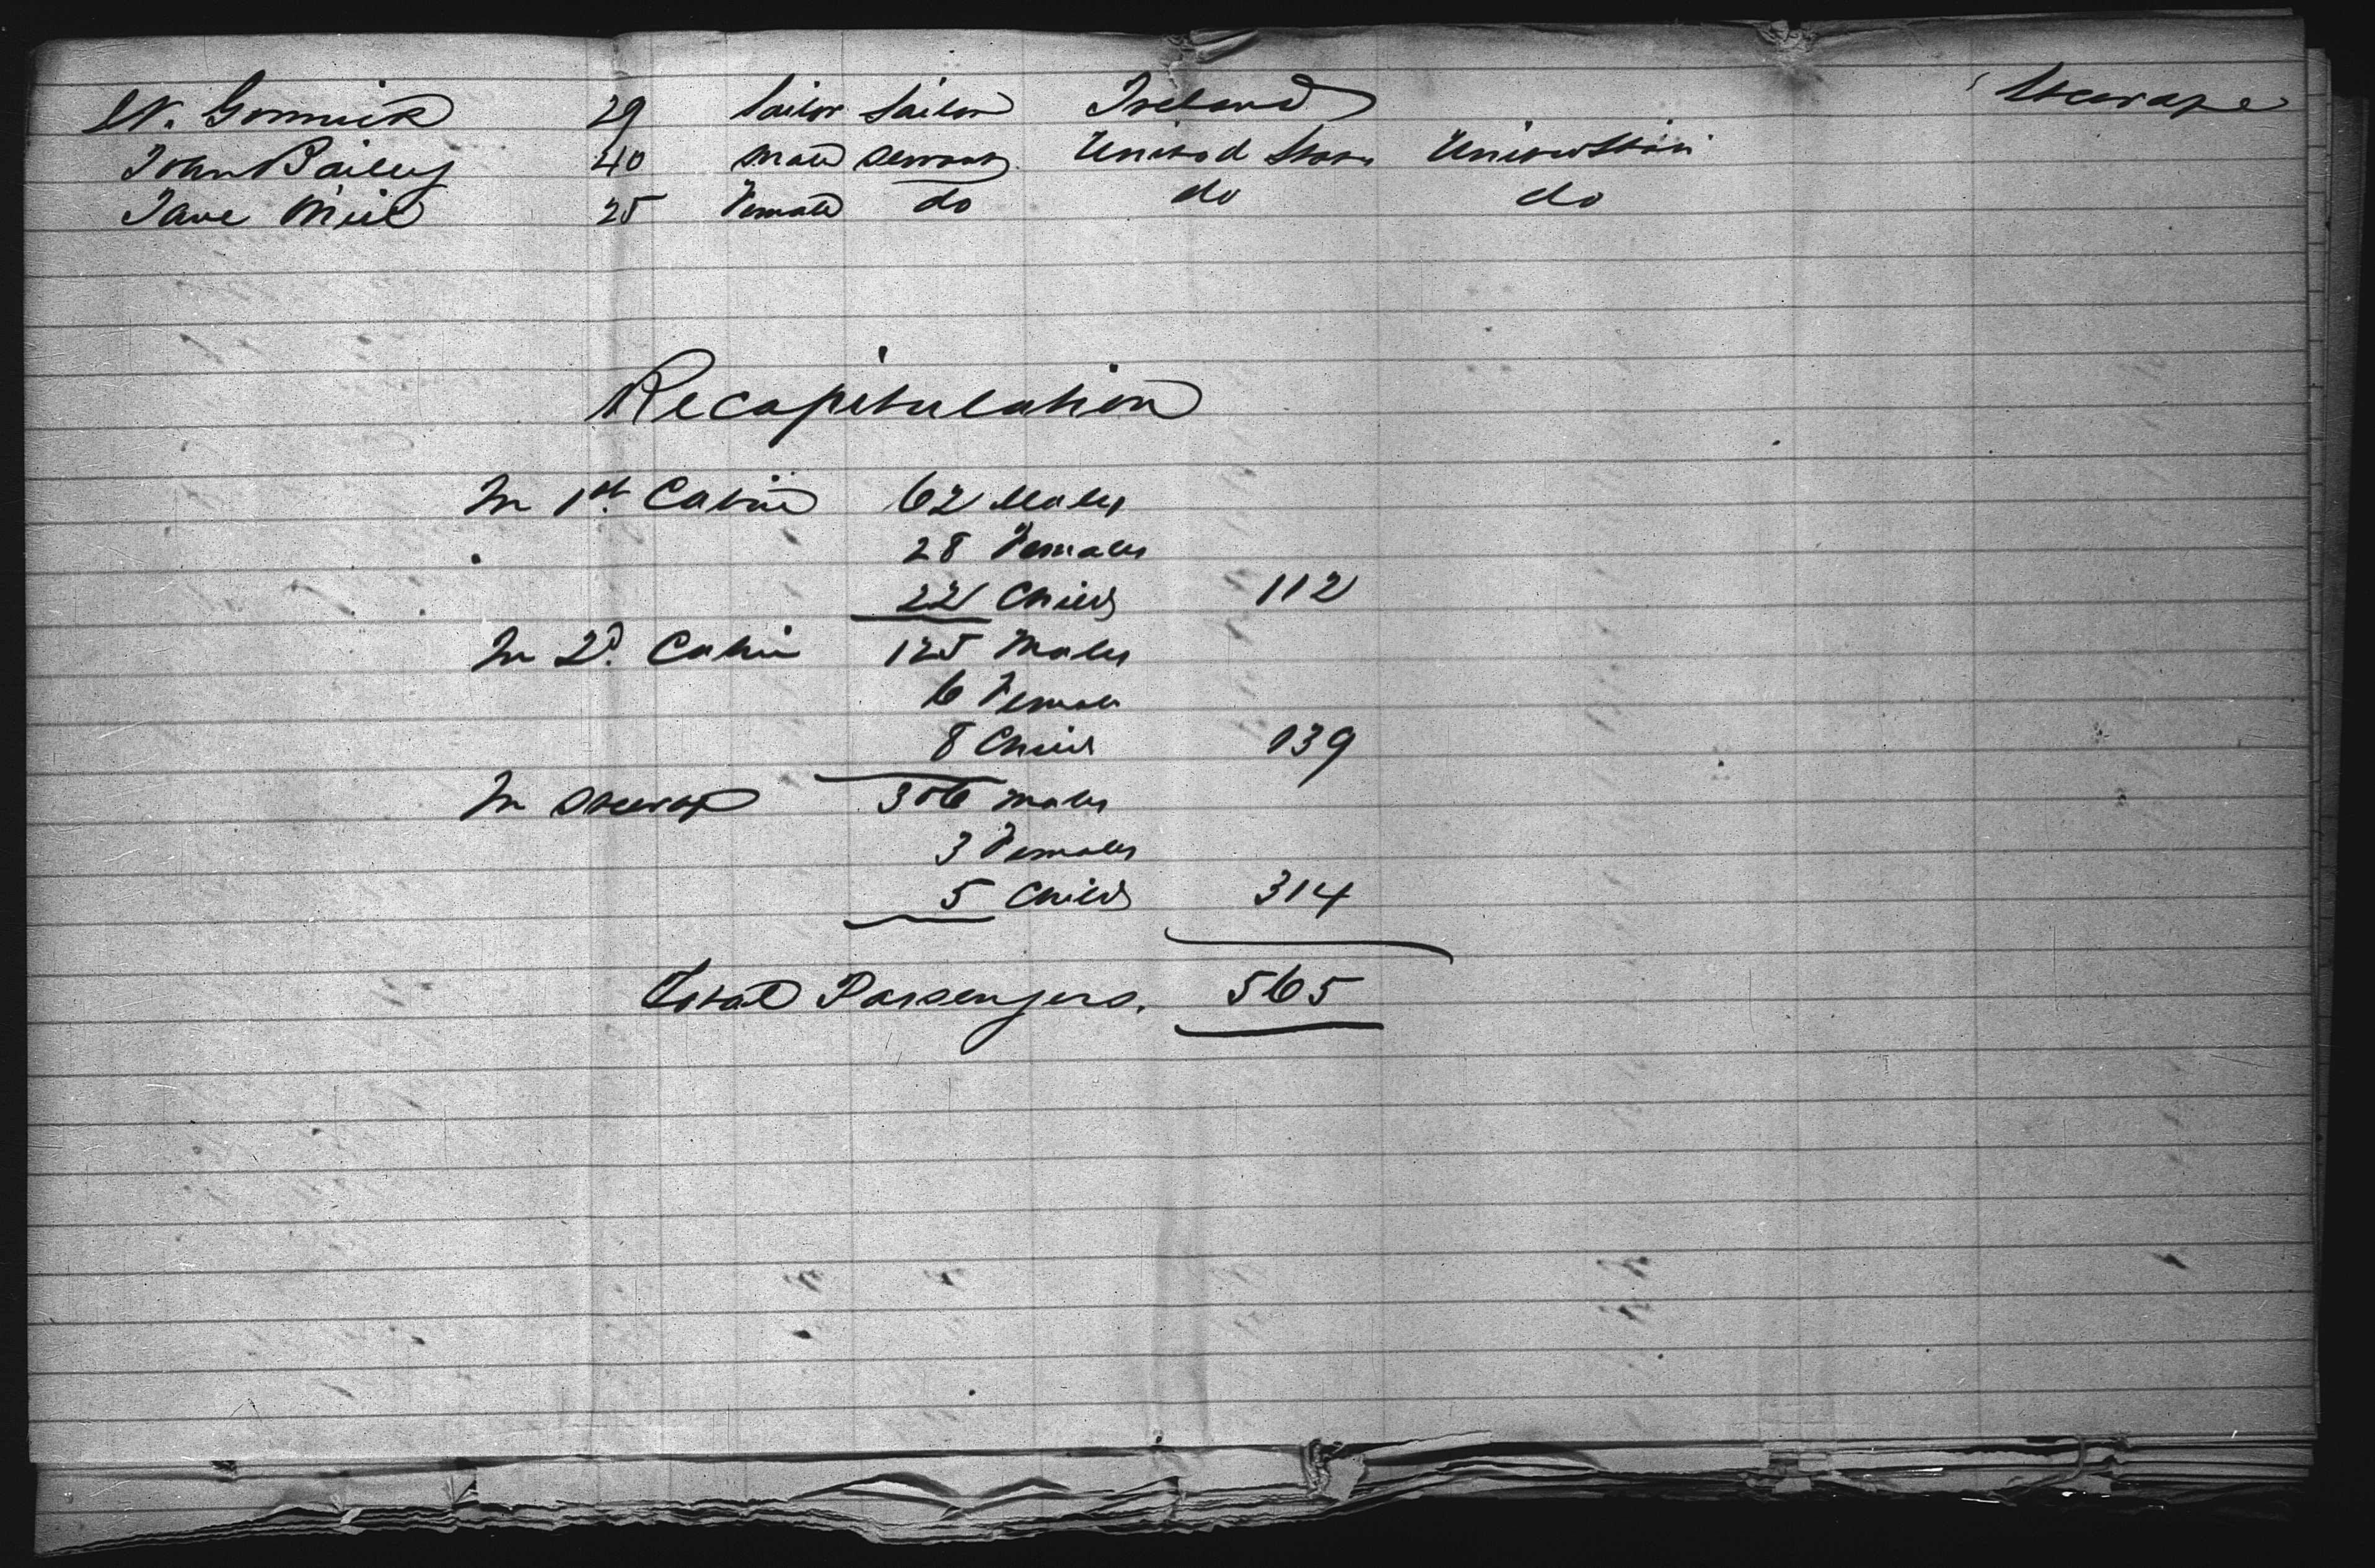 W. Gormick 29 Sailor Sailor Ireland Steerage
John Bailey 40 Male Servant United States United States
Jane 25 Female do do do
Recapitulation
In 1st. Cabin 62 Males
28 Females
22 Child 112
In 2d. Cabin 125 Males
6 Females
8 Child 139
In Steerage 306 Males
3 Females
5 Child 314
Total Passengers. 565